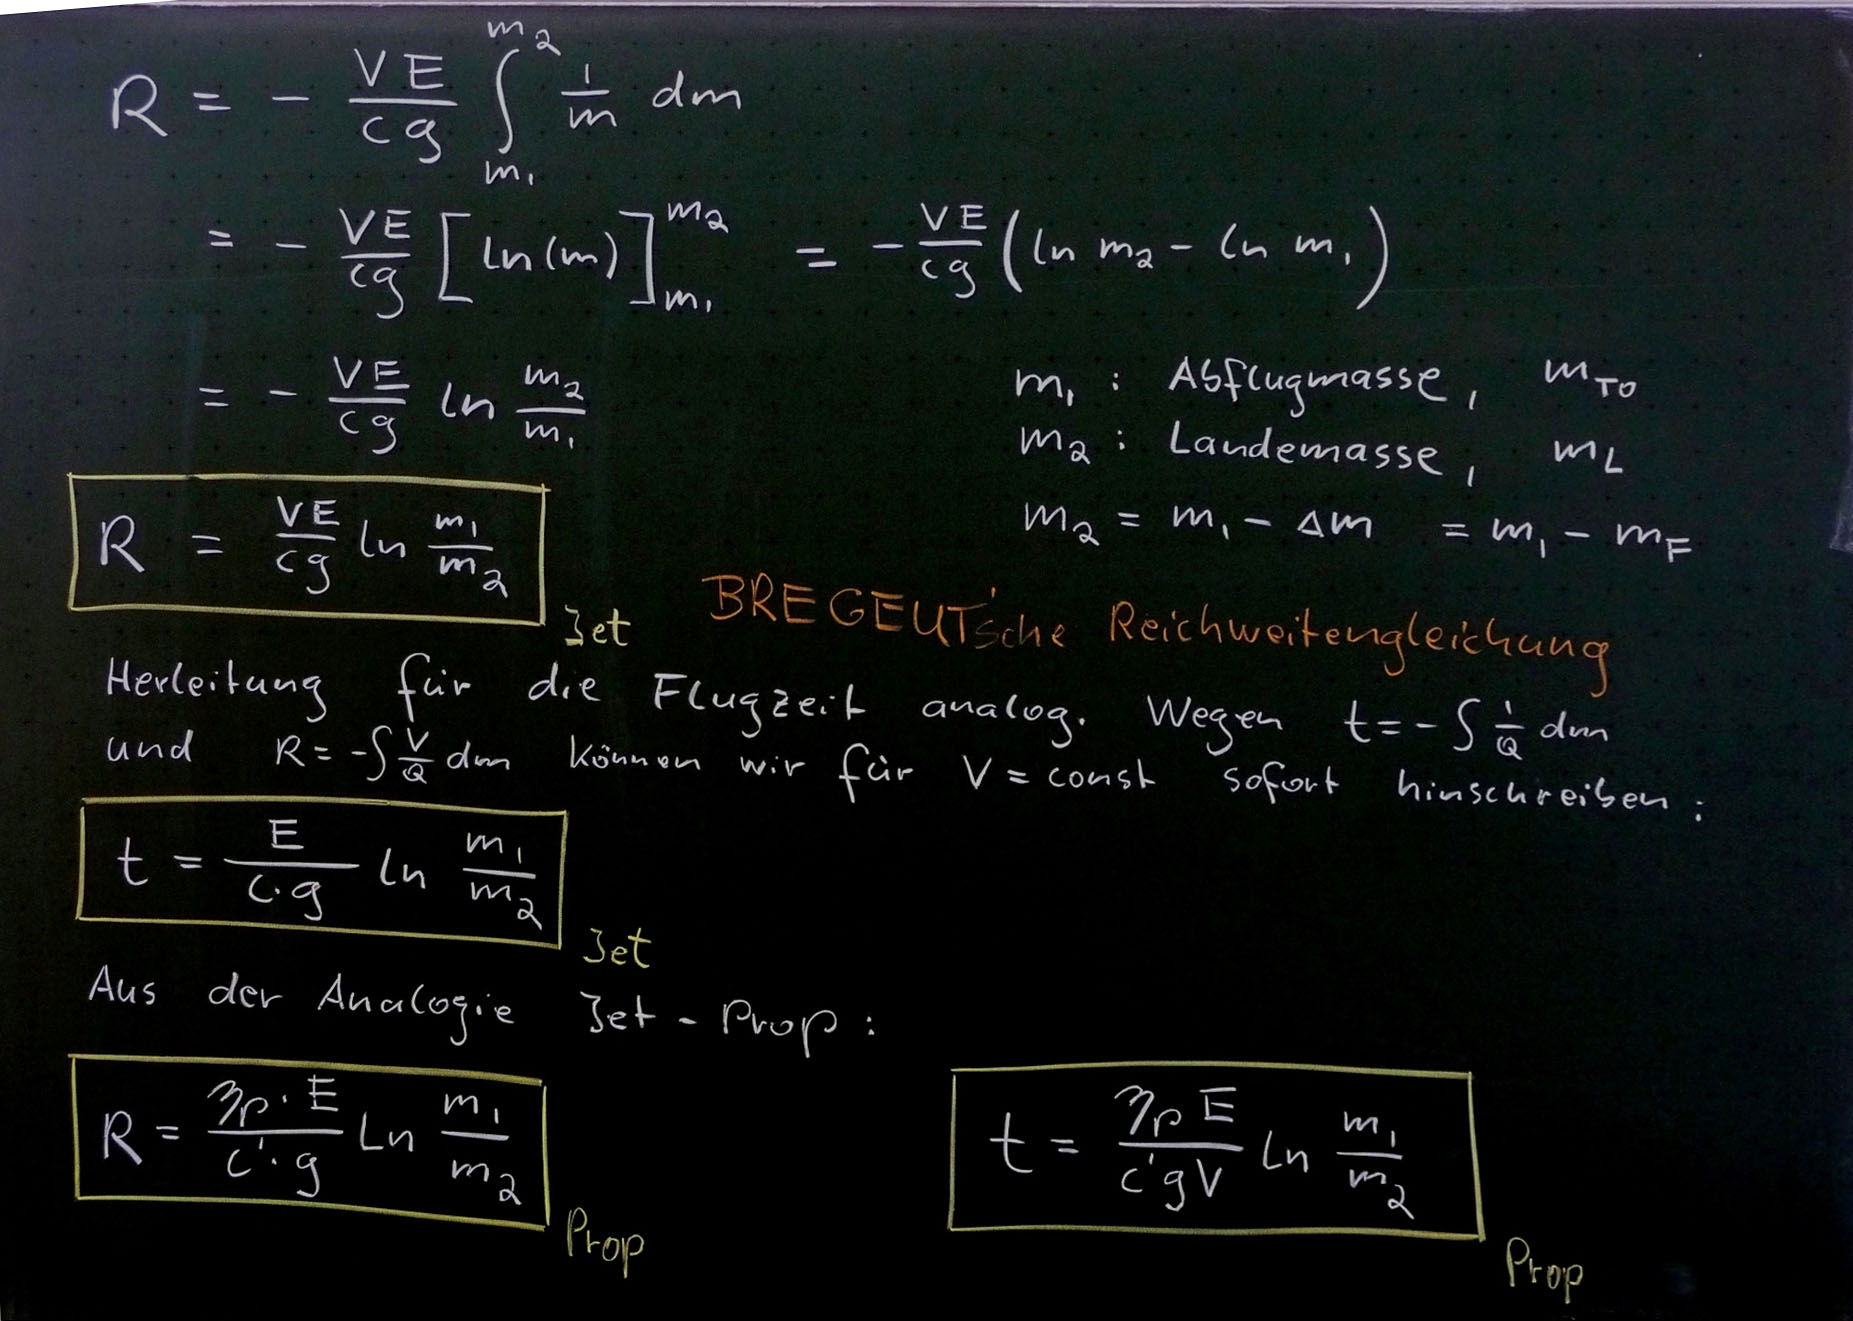 R = - \frac{VE}{cg} \int_{m_1}^{m_2} \frac{1}{m} dm
= - \frac{VE}{cg} [ln(m)]_{m_1}^{m_2} = - \frac{VE}{cg} (ln m_2 - ln m_1)
= - \frac{VE}{cg} ln \frac{m_2}{m_1}
m_1 : Abflugmasse, m_{TO}
m_2 : Landemasse, m_L
m_2 = m_1 - Δm = m_1 - m_F
R = \frac{VE}{cg} ln \frac{m_1}{m_2}
Jet
BREGEUT'sche Reichweitengleichung
Herleitung für die Flugzeit analog. Wegen t = - ∫ \frac{1}{Q} dm
und R = - ∫ \frac{V}{Q} dm können wir für V = const sofort hinschreiben :
t = \frac{E}{c·g} ln \frac{m_1}{m_2}
Jet
Aus der Analogie Jet - Prop :
R = \frac{η_P · E}{c' · g} Ln \frac{m_1}{m_2}
Prop
t = \frac{η_P E}{c' g V} ln \frac{m_1}{m_2}
Prop